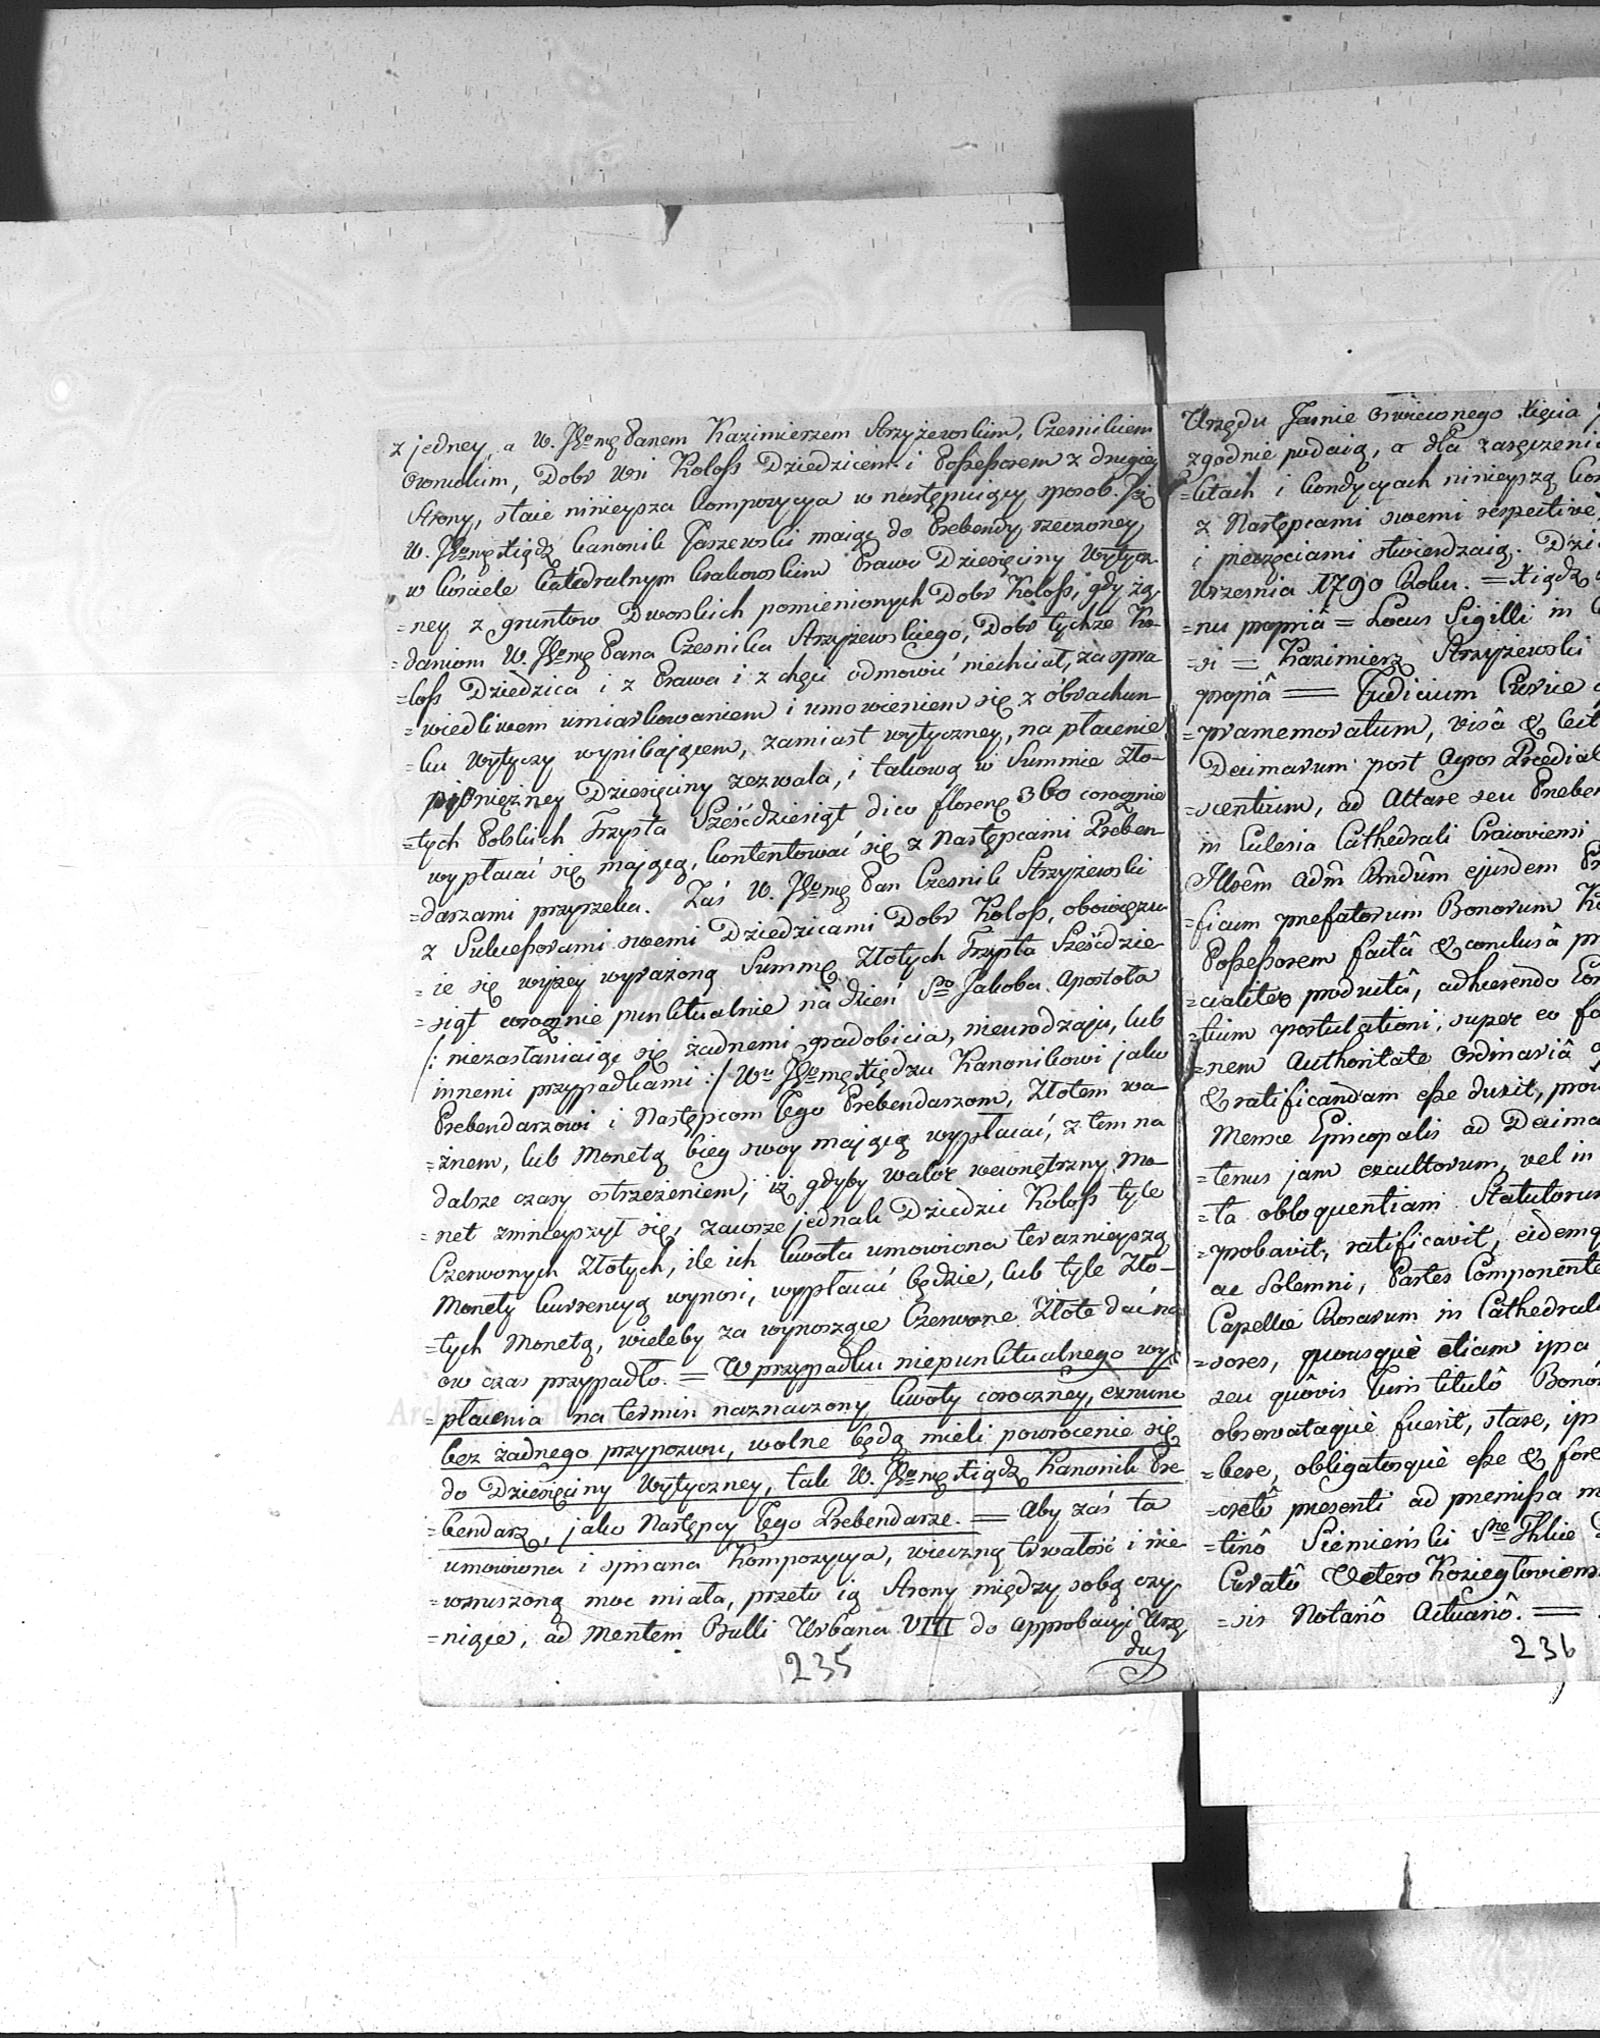 z jedney, a W. Jmę Panem Kazimierzem Strzyżewskim, Czesnikiem
Owruckim, Dobr Wsi Koloss Dziedzicem i Possessorem z drugiey
Strony, staie ninieysza Kompozycya w następuiący sposob. Iż
W. Jmę Xiądz Kanonik Jaszewski maiąc do Prebendy rzeczoney
w Kościele Katedralnym Krakowskim Prawo Dziesięciny Wytycz-
=ney z gruntow Dworskich pomienionych Dobr Koloss, gdy żą-
=daniom W. Jmę Pana Czesnika Strzyżewskiego, Dobr tychże Ko-
=loss Dziedzica i z Prawa i z chęci odmowić niechciał, za spra-
=wiedliwem umiarkowaniem i umowieniem się z obrachun-
=ku wytyczy wynikaiącem, zamiast wytyczney, na płacenie
pieniężney Dziesięciny zezwala, i takową w Summie Zło-
=tych Polskich Trzysta Sześćdziesiąt dico florenę 360 corocznie
wypłacać się maiącą, kontentować się z Następcami Preben-
=darzami przyrzeka. Zaś W. Jmę Pan Czesnik Strzyżewski
z Sukcessorami swemi Dziedzicami Dobr Koloss, obowiązu-
=ie się wyżey wyrażoną Summę Złotych Trzysta Sześćdzie-
=siąt corocznie punktualnie na dzień So Jakoba Apostoła
/: niezasłaniaiąc się żadnemi gradobicia, nieurodzaju, lub
innemi przypadkami :/ Wu Jmę Xiędzu Kanonikowi jako
Prebendarzowi i Następcom Jego Prebendarzom, Złotem wa-
=żnem, lub Monetą bieg swoy maiącą wypłacać, z tem na
dalsze czasy ostrzeżeniem, iż gdyby walor wewnętrzny Mo-
=net zmnieyszył się, zawsze jednak Dziedzic Koloss tyle
Czerwonych Złotych, ile ich kwota umowiona teraznieyszą
Monety kurrencyą wynosi, wypłacać będzie, lub tyle Zło-
=tych Monetą, wieleby za wynoszące Czerwone Złote dać na
ow czas przypadło. = W przypadku niepunktualnego wy-
=płacenia na termin naznaczony kwoty coroczney, exnunc
bez żadnego przypozwu, wolne będą mieli powrocenie się
do Dziesięciny Wytyczney, tak W. Jmę Xiądz Kanonik Pre-
=bendarz, jako Następcy Jego Prebendarze. = Aby zaś ta
umowiona i spisana Kompozycya, wieczną trwałość i nie-
=wzruszoną moc miała, przeto ią Strony między sobą czy-
=niąc, ad mentem Bulli Urbana VIII do approbacyi Urzę
du
235
Urzędu Jaśnie Oswieconego Xięcia
zgodnie podaią, a dla zaręczenia
=ktach i kondycyach ninieyszą
z Następcami swemi respective
i pieczęciami stwierdzaią.
Wrzesnia 1790 Roku. = Xiądz
=nu propriâ = Locus Sigilli in
=si = Kazimierz Strzyżewski
propriâ = Judicium Curiæ
=præmemoratum, visâ &
Decimarum post Agros
=scentium, ad Altare seu
in Ecclesia Cathedrali Cracoviensi
Illrem admô Rmdûm ejusdem
=ficum præfatorum Bonorum
Possessorem factâ & conclusâ
=cialiter productâ, adhærendo
=tium postulationi, super eo
=nem Authoritate Ordinariâ
& ratificandam esse duxit,
Mensæ Episcopalis ad
=tenus jam excultorum, vel in
=ta obloquentiam Statutorum
=probavit, ratificavit,
ac Solemni, Partes
Capellæ Rosarum in
=sores, quousquè etiam ipsa
seu quôvis Juris titulô
observataquè fuerit, stare,
=bere, obligatosquè esse & fore
=cretô præsenti ad præmissa
=tinô Siemieński
Curatô Vetero Koziegłoviensi
=sis Notariô Actuariô. =
236